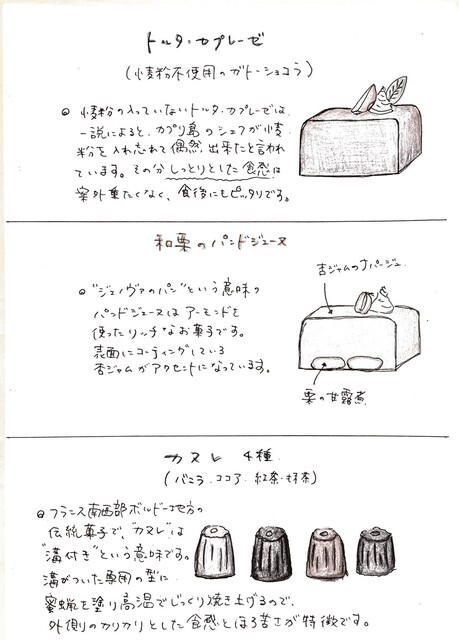 トルタ・カプレーゼ
(小麦粉不使用のガトーショコラ)
◎ 小麦粉の入っていないトルタ・カプレーゼは、
一説によると、カプリ島のシェフが小麦
粉を入れ忘れて偶然出来たと言われ
ています。その分しっとりとした食感は
案外重たくなく、食後にもピッタリです。
和栗のパンドジェーヌ
◎ "ジェノヴァのパン"という意味の
パンドジェーヌはアーモンドを
使ったリッチなお菓子です。
表面にコーティングしている
杏ジャムがアクセントになっています。
杏ジャムのナパージュ
栗の甘露煮
カヌレ 4種
(バニラ・ココア・紅茶・抹茶)
◎ フランス南西部ボルドー地方の
伝統菓子で、"カヌレ"は
"溝付き"という意味です。
溝がついた専用の型に
蜜蝋を塗り高温でじっくり焼き上げるので、
外側のカリカリとした食感とほろ苦さが特徴です。